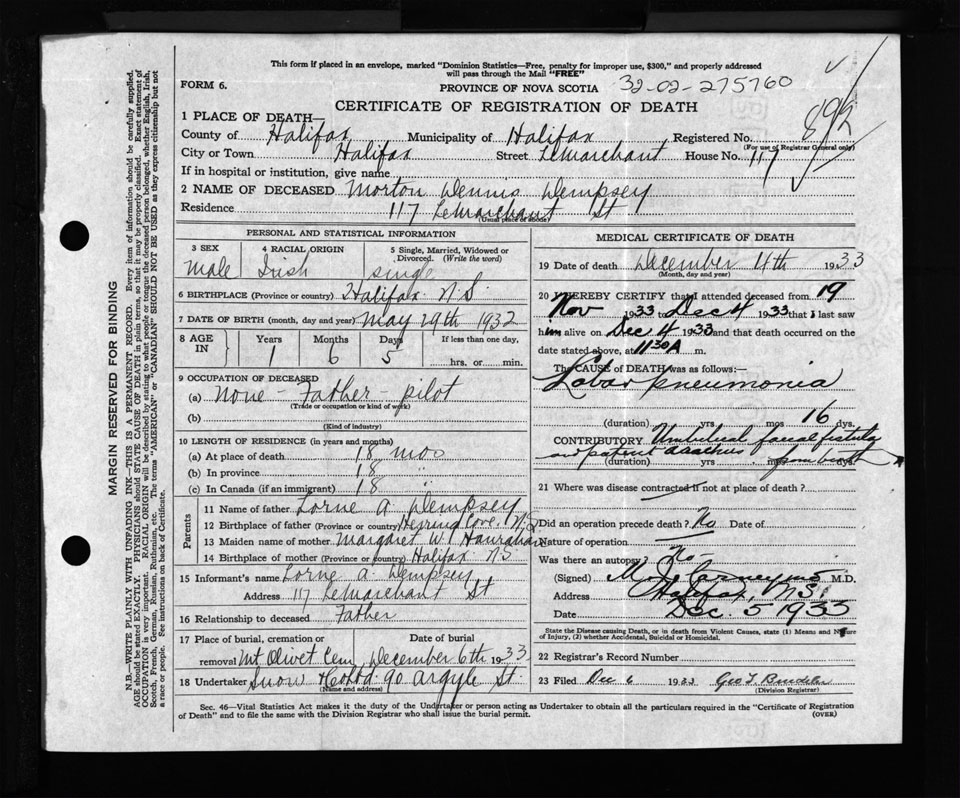 This form if placed in an envelope, marked "Dominion Statistics—Free, penalty for improper use, $300," and properly addressed
will pass through the Mail "FREE"
FORM 6.
PROVINCE OF NOVA SCOTIA
32-02-275760
CERTIFICATE OF REGISTRATION OF DEATH
892
1 PLACE OF DEATH—
County of Halifax Municipality of Halifax Registered No.
(For use of Registrar General only)
City or Town Halifax Street LeMarchant House No. 117
If in hospital or institution, give name
2 NAME OF DECEASED Morton Dennis Dempsey
Residence 117 LeMarchant St
(Usual place of abode)
PERSONAL AND STATISTICAL INFORMATION
3 SEX Male
4 RACIAL ORIGIN Irish
5 Single, Married, Widowed or Divorced. (Write the word) single
6 BIRTHPLACE (Province or country) Halifax N.S.
7 DATE OF BIRTH (month, day and year) May 29th 1932
8 AGE IN Years 1 Months 6 Days 5 If less than one day, hrs. or min.
9 OCCUPATION OF DECEASED
(a) None - Father - pilot
(Trade or occupation or kind of work)
(b)
(Kind of industry)
10 LENGTH OF RESIDENCE (in years and months)
(a) At place of death 18 mos
(b) In province 18 "
(c) In Canada (if an immigrant) 18 "
Parents
11 Name of father Lorne A Dempsey
12 Birthplace of father (Province or country) Herring Cove, N.S
13 Maiden name of mother Margaret W. Hanrahan
14 Birthplace of mother (Province or country) Halifax N.S.
15 Informant's name Lorne A Dempsey
Address 117 LeMarchant St
16 Relationship to deceased Father
17 Place of burial, cremation or removal Mt Olivet Cem Date of burial December 6th 1933
18 Undertaker Snow & Co Ltd. 90 Argyle St.
(Name and address)
MEDICAL CERTIFICATE OF DEATH
19 Date of death December 4th 1933
(Month, day and year)
20 I HEREBY CERTIFY that I attended deceased from 19
Nov 1933 Dec 4 1933 that I last saw
him alive on Dec 4 1933 and that death occurred on the
date stated above, at 1130 A m.
The CAUSE of DEATH was as follows:—
Lobar pneumonia
(duration) yrs mos 16 dys.
CONTRIBUTORY Umbilical faecal fistula
and patent urachus from birth
(duration) yrs. mos. dys.
21 Where was disease contracted if not at place of death?
Did an operation precede death? No Date of
Nature of operation
Was there an autopsy? No
(Signed) M.D.
Address Halifax, N.S.
Date Dec 5 1933
State the Disease causing Death, or in death from Violent Causes, state (1) Means and Nature
of Injury, (2) whether Accidental, Suicidal or Homicidal.
22 Registrar's Record Number
23 Filed Dec 6 1933 Geo
(Division Registrar)
Sec. 46—Vital Statistics Act makes it the duty of the Undertaker or person acting as Undertaker to obtain all the particulars required in the "Certificate of Registration
of Death" and to file the same with the Division Registrar who shall issue the burial permit.
(OVER)
MARGIN RESERVED FOR BINDING
N.B.—WRITE PLAINLY WITH UNFADING INK—THIS IS A PERMANENT RECORD. Every item of information should be carefully supplied.
AGE should be stated EXACTLY. PHYSICIANS should STATE CAUSE OF DEATH in plain terms, so that it may be properly classified. Exact statement of
OCCUPATION is very important. RACIAL ORIGIN will be described by stating to what people or tongue the deceased person belonged, whether English, Irish,
Scotch, French, German, Russian, Ruthenian, etc. The terms "AMERICAN" or "CANADIAN" SHOULD NOT BE USED as they express citizenship but not
a race or people. See instructions on back of Certificate.